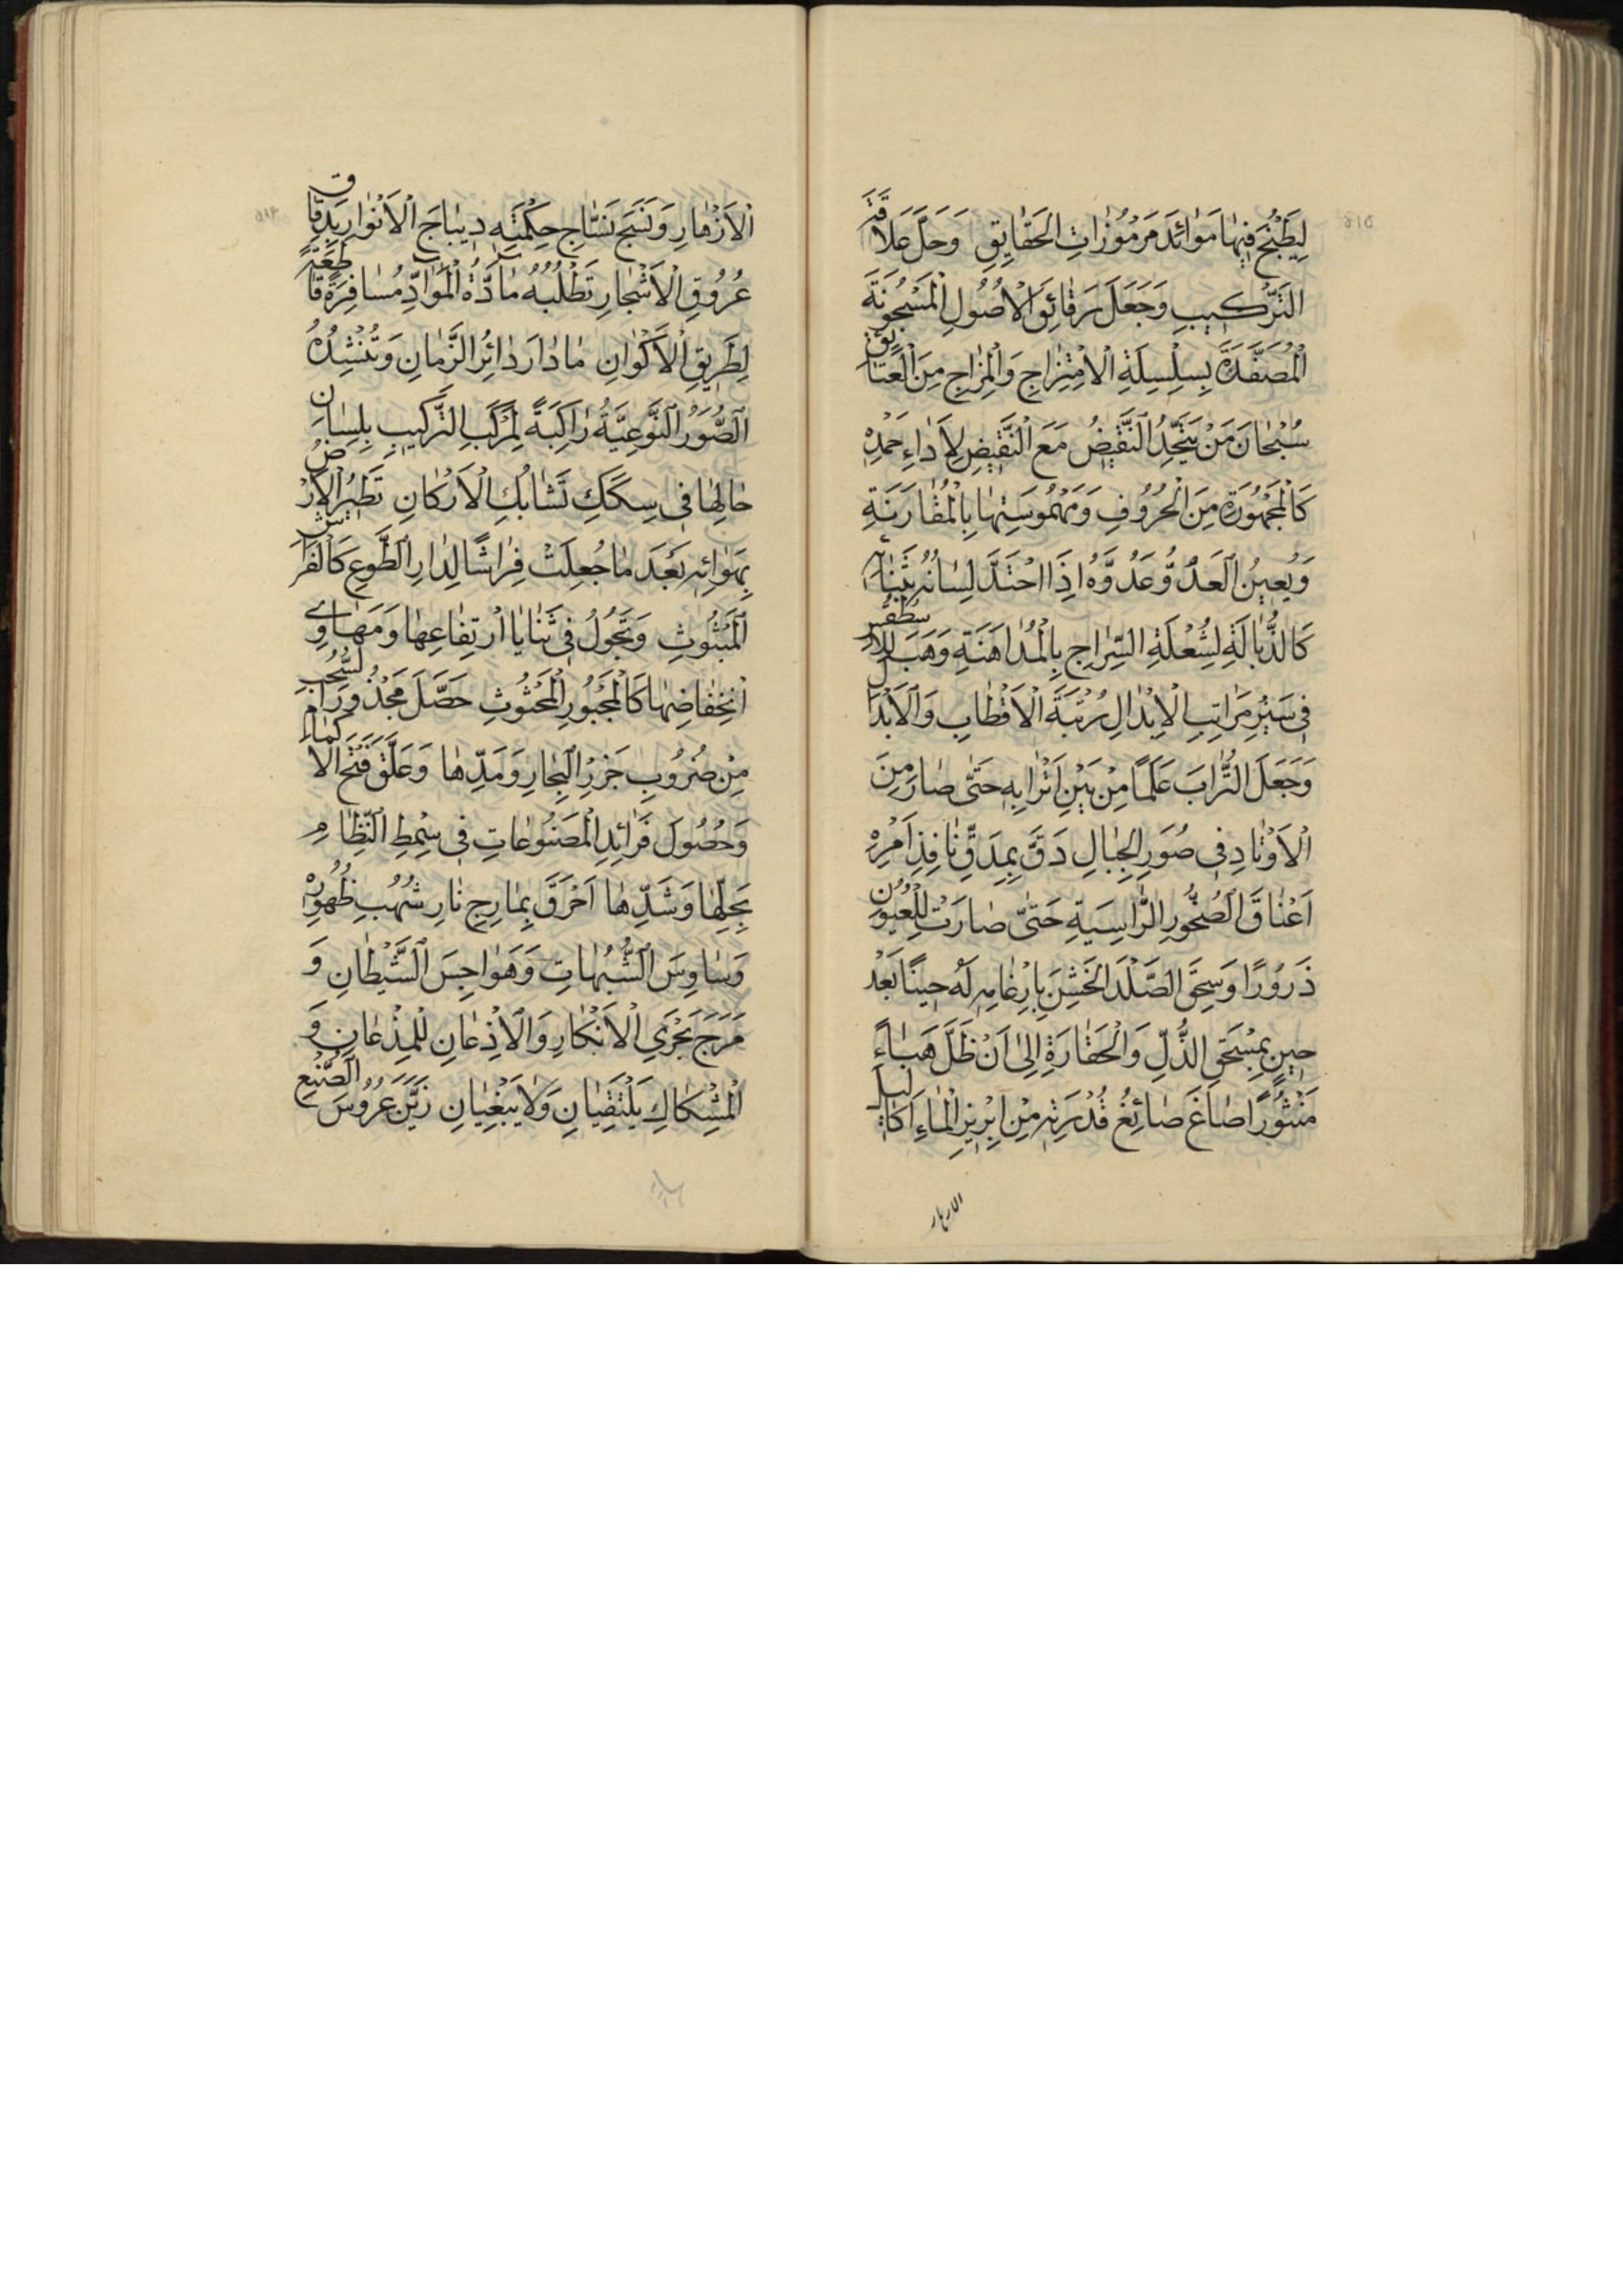 لِيَطْبُخَ فِيهَا مَوَائِدَ مَرْمُوزَاتِ الْحَقَايِقِ وَحَلَّ عَلَاقَةَ
التَّرْكِيبِ وَجَعَلَ رَقَائِقَ الْأُصُولِ الْمَسْجُونَةَ
الْمُصَفَّدَةَ بِسِلْسِلَةِ الْاِمْتِزَاجِ وَالْمِزَاجِ مِنَ الْعَتَايِقِ
سُبْحَانَ مَنْ يَتَّحِدُ النَّقِيضُ مَعَ النَّقِيضِ لِأَدَاءِ حَمْدِهِ
كَالْمَجْهُورَةِ مِنَ الْحُرُوفِ وَمَهْمُوسَتِهَا بِالْمُقَارَنَةِ
وَيُعِينُ الْعَدُوَّ عَدُوَّهُ إِذَا احْتَدَّ لِسَانُهُ بِثَنَائِهِ
كَالذُّبَالَةِ لِشُعْلَةِ السِّرَاجِ بِالْمُدَاهَنَةِ وَهَبَ لِلْاِسْطُقُسِّ
فِي سَيْرِ مَرَاتِبِ الْاِبْدَالِ رُتْبَةَ الْأَقْطَابِ وَالْأَبْدَالِ
وَجَعَلَ التُّرَابَ عَلَمًا مِنْ بَيْنِ أَتْرَابِهِ حَتَّى صَارَ مِنَ
الْأَوْتَادِ فِي صُوَرِ الْجِبَالِ دَقَّ بِمِدَقِّ نَافِذِ أَمْرِهِ
أَعْنَاقَ الصُّخُورِ الرَّاسِيَةِ حَتَّى صَارَتْ لِلْعُيُونِ
ذَرُورًا وَسَحَقَ الصَّلْدَ الْخَشِنَ بِإِرْغَامِهِ لَهُ حِينًا بَعْدَ
حِينٍ بِمِسْحَقِ الذُّلِّ وَالْحَقَارَةِ إِلَى أَنْ ظَلَّ هَبَاءً
مَنْثُورًا صَاغَ صَائِغُ قُدْرَتِهِ مِنْ إِبْرِيزِ الْمَاءِ أَكَالِيلَ
الازهار
الْأَزْهَارِ وَنَسَجَ نَسَّاجُ حِكْمَتِهِ دِيبَاجَ الْأَنْوَارِ بِدِقَاقِ
عُرُوقِ الْأَشْجَارِ تَطْلُبُهُ مَادَّةُ الْمَوَادِّ مُسَافِرَةً قَاطِعَةً
لِطَرِيقِ الْأَكْوَانِ مَا دَارَ دَائِرُ الزَّمَانِ وَتُنْشِدُهُ
الصُّوَرُ النَّوْعِيَّةُ رَاكِبَةً لِمَرْكَبِ التَّرْكِيبِ بِلِسَانِ
حَالِهَا فِي سِكَكِ تَشَابُكِ الْأَرْكَانِ تَطِيرُ الْأَرْضُ
بِهَوَائِهِ بَعْدَ مَا جُعِلَتْ فِرَاشًا لِدَارِ الطَّوْعِ كَالْفَرَاشِ
الْمَبْثُوثِ وَتَجُولُ فِي ثَنَايَا ارْتِفَاعِهَا وَمَهَاوِي
انْخِفَاضِهَا كَالْمَجْبُورِ الْمَحْثُوثِ حَصَّلَ مَجْذُورَ أَمِّ السُّحُبِ
مِنْ ضُرُوبِ جَزْرِ الْبِحَارِ وَمَدِّهَا وَعَلَّقَ فَتْحَ الْأَكْمَامِ
وَحُصُولَ فَرَائِدِ الْمَصْنُوعَاتِ فِي سِمْطِ النِّظَامِ
بِحَلِّهَا وَشَدِّهَا أَحْرَقَ بِمَارِجِ نَارِ شُهُبِ ظُهُورِهِ
وَسَاوِسَ الشُّبُهَاتِ وَهَوَاجِسَ الشَّيْطَانِ وَ
مَرَجَ بَحْرَيِ الْإِنْكَارِ وَالْإِذْعَانِ لِلْمِذْعَانِ وَ
الْمِشْكَاكِ يَلْتَقِيَانِ وَلَا يَبْغِيَانِ زَيَّنَ عَرُوسَ الصُّنْعِ